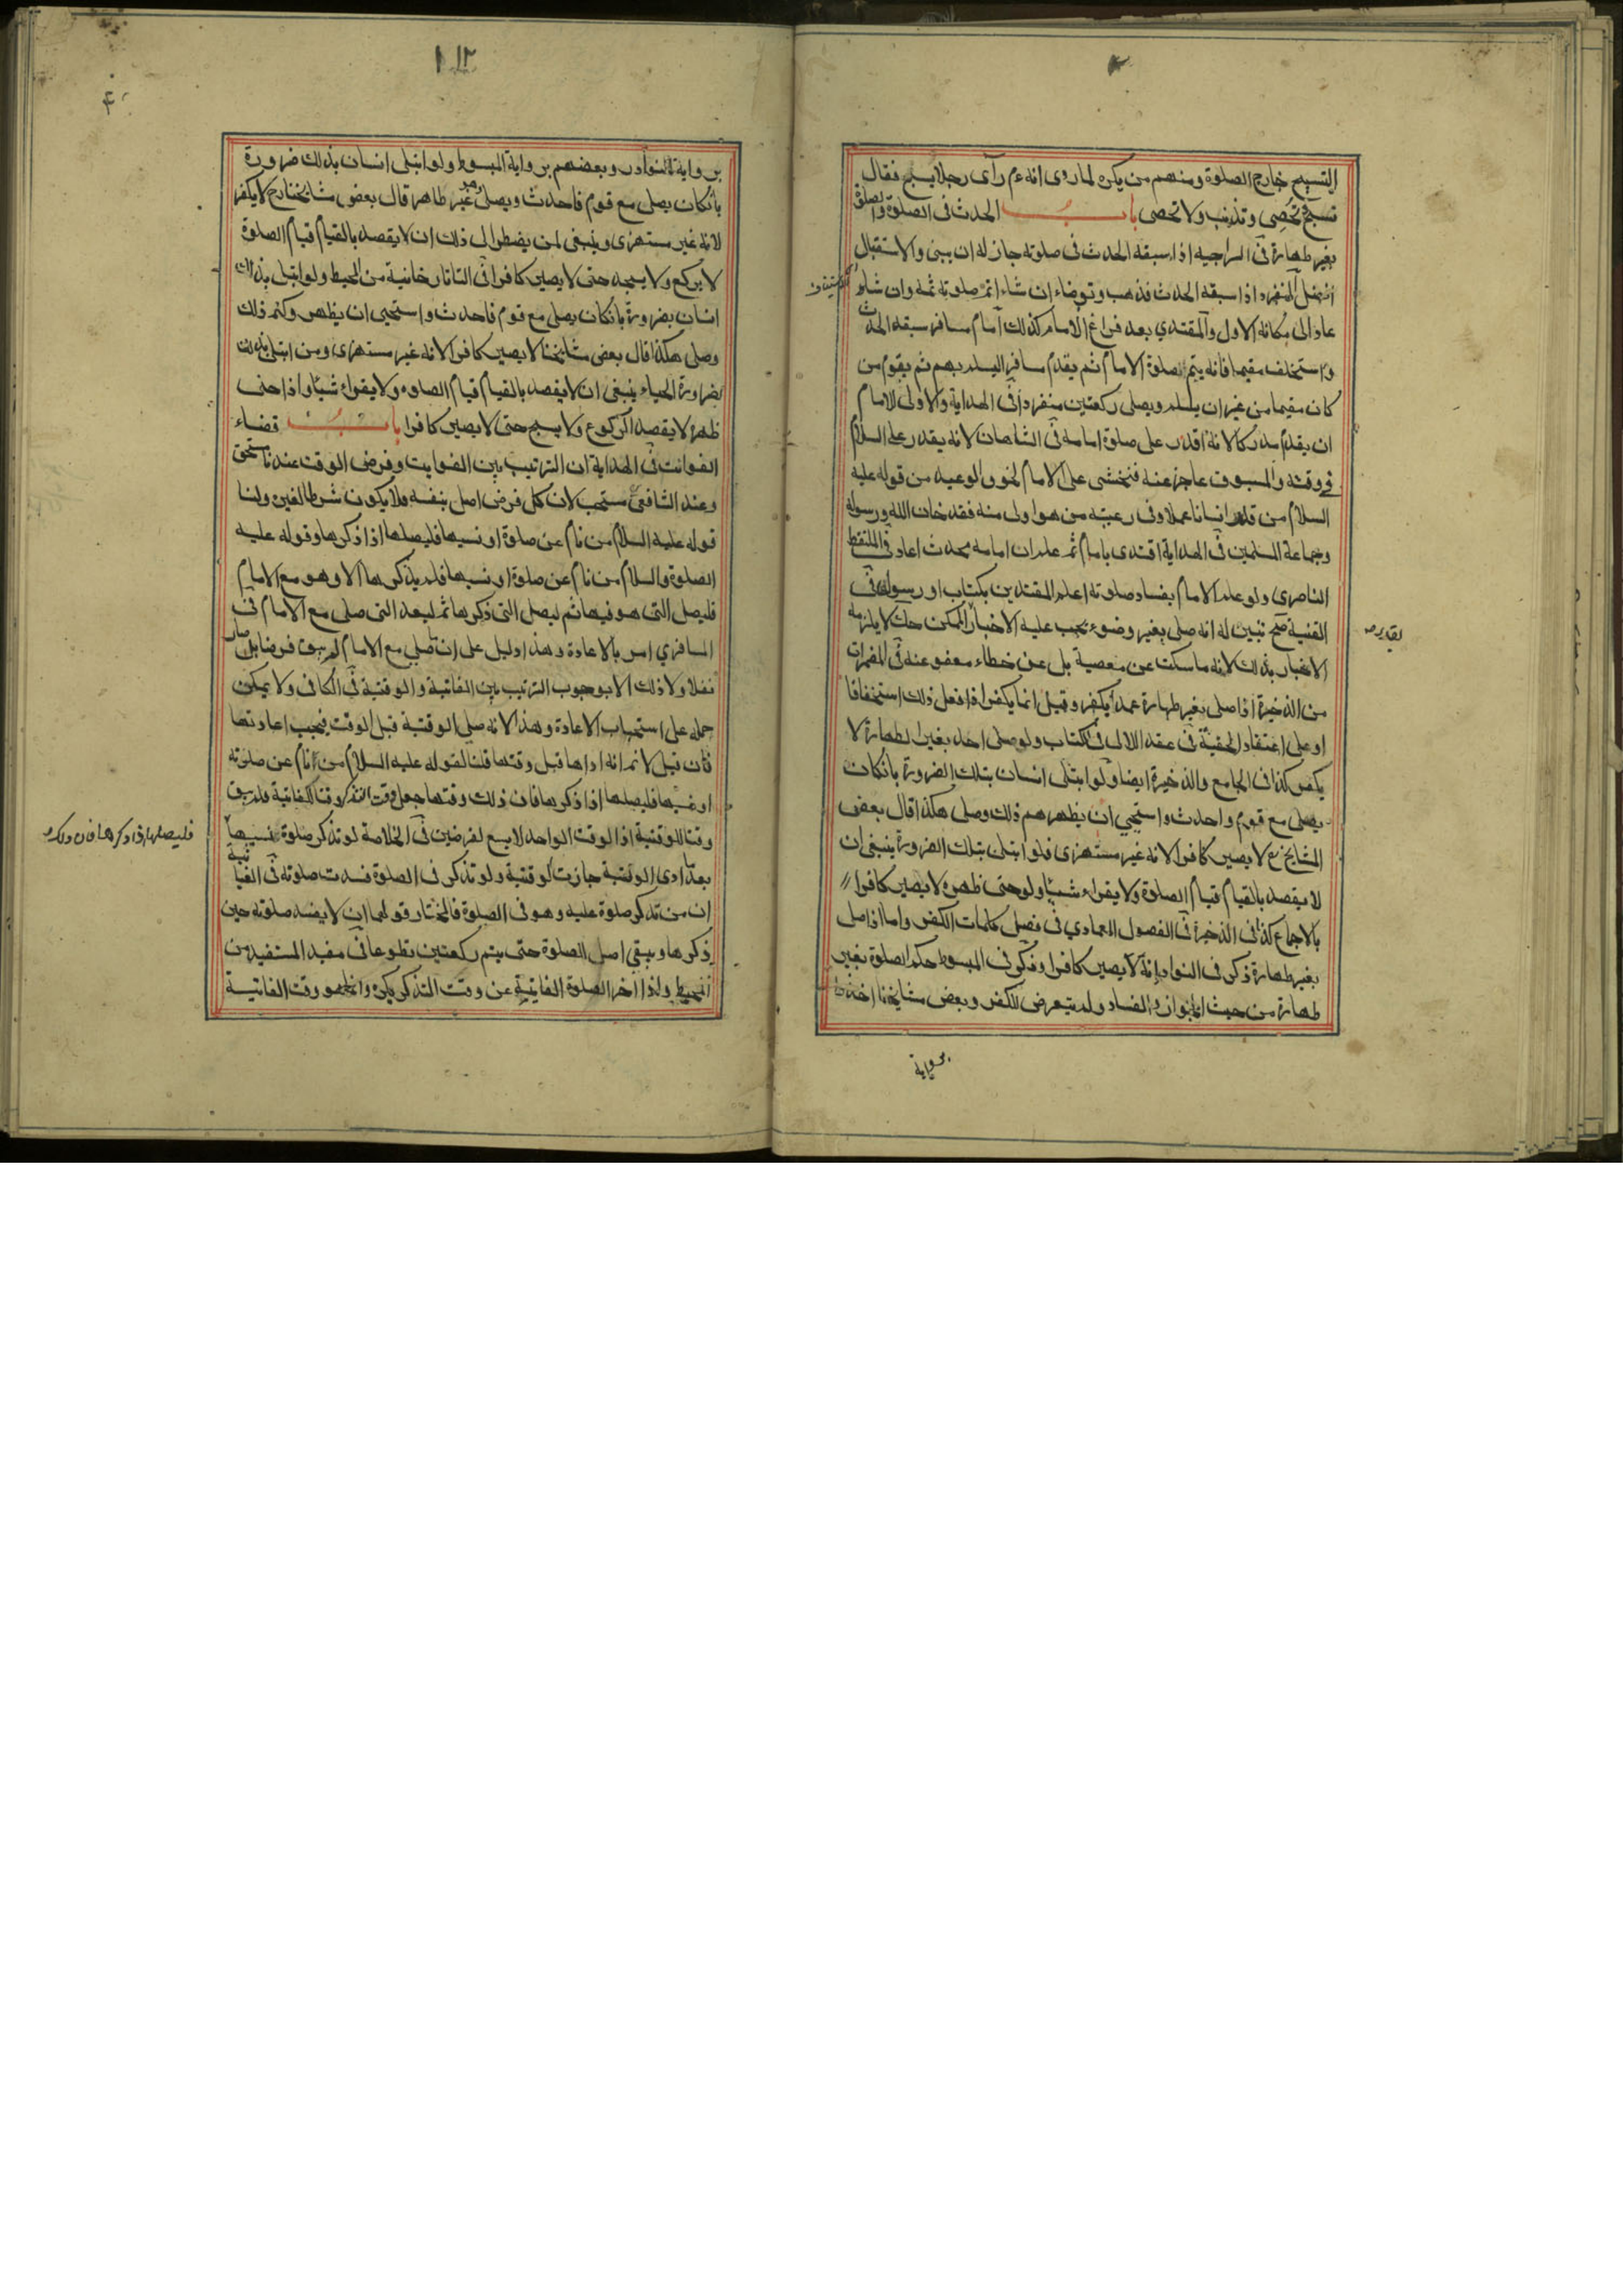 التسبيح خارج الصلوة ومنهم من يكره لما روى انه عم رآى رجلا يسبح فقال
تسبح تحصى وتذنب ولا تحصى باب الحدث فى الصلوة والصلوة
بغير طهارة فى السراجيه اذا سبقه الحدث فى صلوته جاز له ان يبنى والاستقبال
افضل المنفرد اذا سبقه الحدث فذهب وتوضاء ان شاء اتم صلوته ثمه وان شاء
عاد الى مكانه الاول والمقتدي بعد فراغ الامام كذلك امام مسافر سبقه الحدث
واستخلف مقيما فانه يتم صلوة الامام ثم يقدم مسافرا ليسلم بهم ثم يقوم من
كان مقيما من غير ان يسلم ويصلى ركعتين منفردا فى الهداية والاولى للامام
ان يقدم مدركا لانه اقدر على صلوة امامه فى الشاهان لانه يقدر على السلام
فى وقته والمسبوق عاجز عنه فنخشى على الامام لخوف الوعيد من قوله عليه
السلام من قلد انسانا عملا وفى رعيته من هو اولى منه فقد خان الله ورسوله
وجماعة المسلمين فى الهداية اقتدى بامام ثم علم ان امامه محدث اعاد فى الملتقط
الناصرى ولو علم الامام بفساد صلوته اعلم المقتدين بكتاب او رسول فى
القنية صح تبين له انه صلى بغير وضوء يجب عليه الاخبار الممكن حك لا يلزمه
الاخبار بذلك لانه ما سكت عن معصية بل عن خطاء معفو عنه فى المضمرات
من الذخيرة اذا صلى بغير طهارة عمدا يكفر وقيل انما يكفر اذا فعل ذلك استخفافا
او على اعتقاد الحقية فى عقد اللالى فى الكتاب ولو صلى احد بغير الطهارة لا
يكفر كذا فى الجامع والذخيرة ايضا ولو ابتلى انسان بتلك الضرورة بانكان
يصلى مع قوم واحدث واستحيى ان يظهرهم ذلك وصلى هكذا قال بعض
المشايخ رح لا يصير كافرا لانه غير مستهزى فلو ابتلى بتلك الضرورة ينبغى ان
لا يقصد بالقيام قيام الصلوة ولا يقراء شيئا ولو حنى ظهره لا يصير كافرا
بالاجماع كذا فى الذخيرة فى الفصول العمادي فى فصل كلمات الكفر واما اذا صلى
بغير طهارة ذكر فى النوادر انه لا يصير كافرا وذكر فى المبسوط حكم الصلوة بغير
طهارة من حيث الجواز والفساد ولم يتعرض الكفر وبعض مشايخنا اخذوا
برواية
برواية النوادر وبعضهم برواية المبسوط ولو ابتلى انسان بذلك ضرورة
بانكان يصلى مع قوم فاحدث ويصلى وهو غير طاهر قال بعض مشايخنا رح لا يكفر
لانه غير مستهزى وينبغى لمن يضطر الى ذلك ان لا يقصد بالقيام قيام الصلوة
لا يركع ولا يسجد حتى لا يصير كافرا فى التاتارخانية من المحيط ولو ابتلى بذلك
انسان بضرورة بانكان يصلى مع قوم فاحدث واستحيى ان يظهر وكتم ذلك
وصلى هكذا قال بعض مشايخنا لا يصير كافرا لانه غير مستهزى ومن ابتلى بذلك
بضرورة الحياء ينبغى ان لا يقصد بالقيام قيام الصلوه ولا يقراء شيئا واذا حنى
ظهره لا يقصد الركوع ولا يسبح حتى لا يصير كافرا باب قضاء
الفوائت فى الهداية ان الترتيب بين الفوايت وفرض الوقت عندنا مستحق
وعند الشافعى مستحب لان كل فرض اصل بنفسه فلا يكون شرطا لغيره ولنا
قوله عليه السلام من نام عن صلوة او نسيها فليصلها اذا ذكرها وقوله عليه
الصلوة والسلام من نام عن صلوة او نسيها فلم يذكرها الا وهو مع الامام
فليصل التى هو فيها ثم ليصل التى ذكرها ثم ليعد التى صلى مع الامام فى
المسافري امر بالاعادة وهذا دليل على ان ما صلى مع الامام لم يبق فرضا بل صار
نفلا ولا ذلك الا بوجوب الترتيب بين الفائتة والوقتية فى الكافى ولا يمكن
حمله على استحباب الاعادة وهذا لانه صلى الوقتية قبل الوقت فيجب اعادتها
فان قيل لا نم انه اداها قبل وقتها قلنا لقوله عليه السلام من نام عن صلوته
او نسيها فليصلها اذا ذكرها فان ذلك وقتها جعل وقت التذكر وقتا للفائتة فلم يبق
وقتا للوقتية اذ الوقت الواحد لا يسع لفرضين فى الخلاصة لو تذكر صلوة نسيها
بعد ما ادى الوقتية جازت الوقتية ولو تذكر فى الصلوة فسدت صلوته فى الغياثية
ان من تذكر صلوة عليه وهو فى الصلوة فالمختار قولهما ان لا يفسد صلوته حين
ذكرها ويبقى اصل الصلوة حتى يتم ركعتين تطوعا فى مفيد المستفيد من
المحيط واذا اخر الصلوة الفائتة عن وقت التذكر يكره وانما هو وقت الفائتة
فليصلها اذا ذكرها فان ذلك